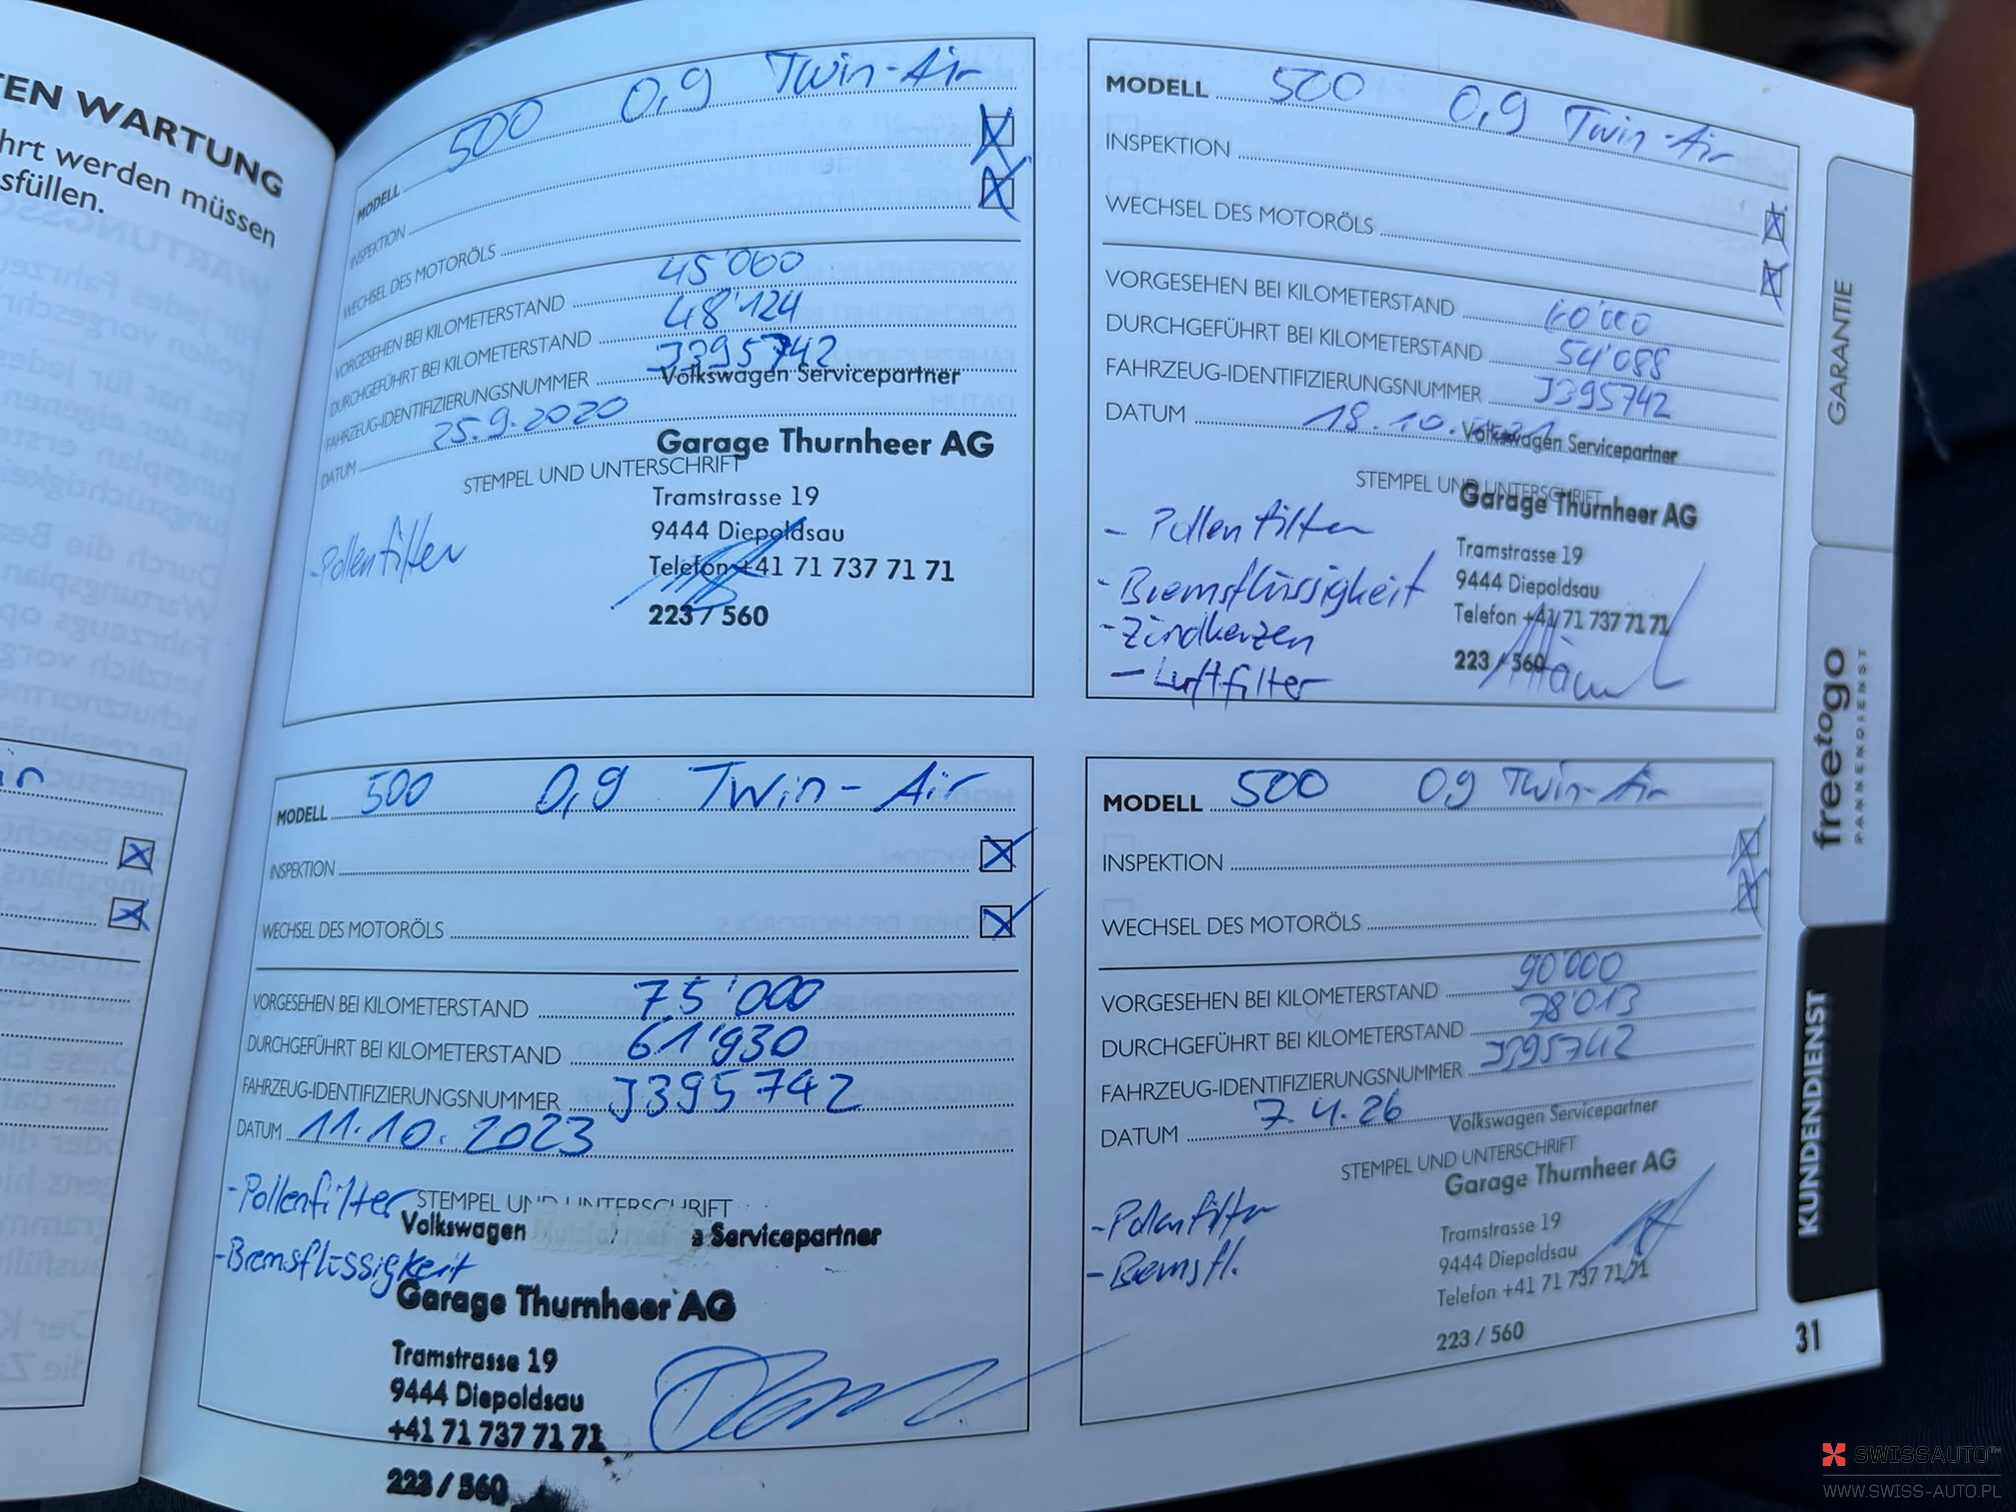 TEN WARTUNG
hrt werden müssen
sfüllen.
MODELL 500 0,9 Twin-Air
INSPEKTION
WECHSEL DES MOTORÖLS
VORGESEHEN BEI KILOMETERSTAND 45'000
DURCHGEFÜHRT BEI KILOMETERSTAND 48'124
FAHRZEUG-IDENTIFIZIERUNGSNUMMER J395742
DATUM 25.9.2020
Volkswagen Servicepartner
Garage Thurnheer AG
STEMPEL UND UNTERSCHRIFT
Tramstrasse 19
9444 Diepoldsau
- Pollenfilter
Telefon +41 71 737 71 71
223 / 560
MODELL 500 0,9 Twin-Air
INSPEKTION
WECHSEL DES MOTORÖLS
VORGESEHEN BEI KILOMETERSTAND 60'000
DURCHGEFÜHRT BEI KILOMETERSTAND 54'088
FAHRZEUG-IDENTIFIZIERUNGSNUMMER J395742
DATUM 18.10.
Volkswagen Servicepartner
STEMPEL UND UNTERSCHRIFT
Garage Thurnheer AG
- Pollenfilter
Tramstrasse 19
- Bremsflüssigkeit
9444 Diepoldsau
Telefon +41 71 737 71 71
- Zündkerzen
223 / 560
- Luftfilter
MODELL 500 0,9 Twin-Air
INSPEKTION
WECHSEL DES MOTORÖLS
VORGESEHEN BEI KILOMETERSTAND 75'000
DURCHGEFÜHRT BEI KILOMETERSTAND 61'930
FAHRZEUG-IDENTIFIZIERUNGSNUMMER J395742
DATUM 11.10.2023
- Pollenfilter
STEMPEL UND UNTERSCHRIFT
Volkswagen Servicepartner
- Bremsflüssigkeit
Garage Thurnheer AG
Tramstrasse 19
9444 Diepoldsau
+41 71 737 71 71
223 / 560
MODELL 500 0,9 Twin-Air
INSPEKTION
WECHSEL DES MOTORÖLS
VORGESEHEN BEI KILOMETERSTAND 90'000
DURCHGEFÜHRT BEI KILOMETERSTAND 78'013
FAHRZEUG-IDENTIFIZIERUNGSNUMMER J395742
DATUM 7.4.26
Volkswagen Servicepartner
STEMPEL UND UNTERSCHRIFT
Garage Thurnheer AG
- Pollenfilter
Tramstrasse 19
- Bremsfl.
9444 Diepoldsau
Telefon +41 71 737 71 71
223 / 560
GARANTIE
freetogo
PANNENDIENST
KUNDENDIENST
31
SWISSAUTO™
WWW.SWISS-AUTO.PL